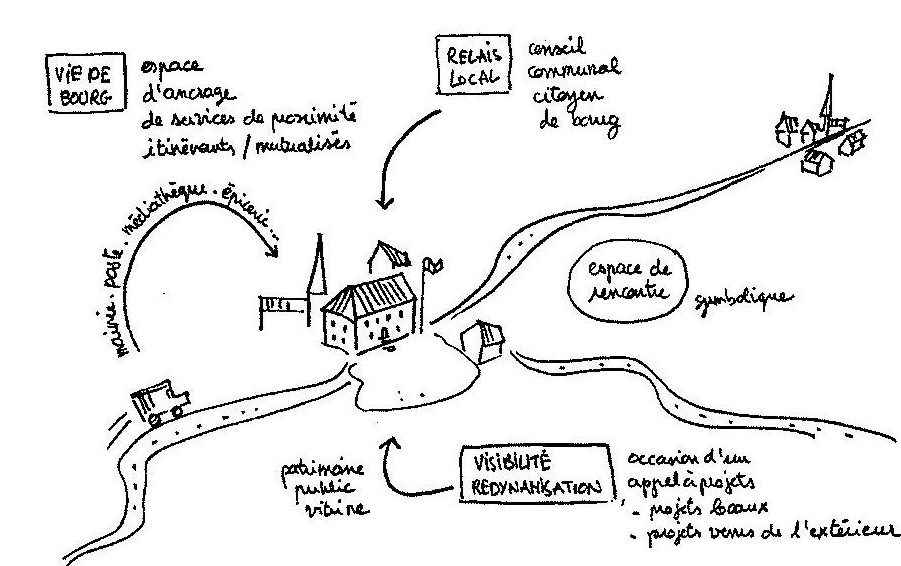 VIE DE
BOURG
espace
d'ancrage
de services de proximité
itinérants / mutualisés
RELAIS
LOCAL
conseil
communal
citoyen
de bourg
mairie. poste. médiathèque. épicerie...
espace de
rencontre
symbolique
patrimoine
public
vitrine
VISIBILITÉ
REDYNAMISATION
occasion d'un
appel à projets
. projets locaux
. projets venus de l'extérieur